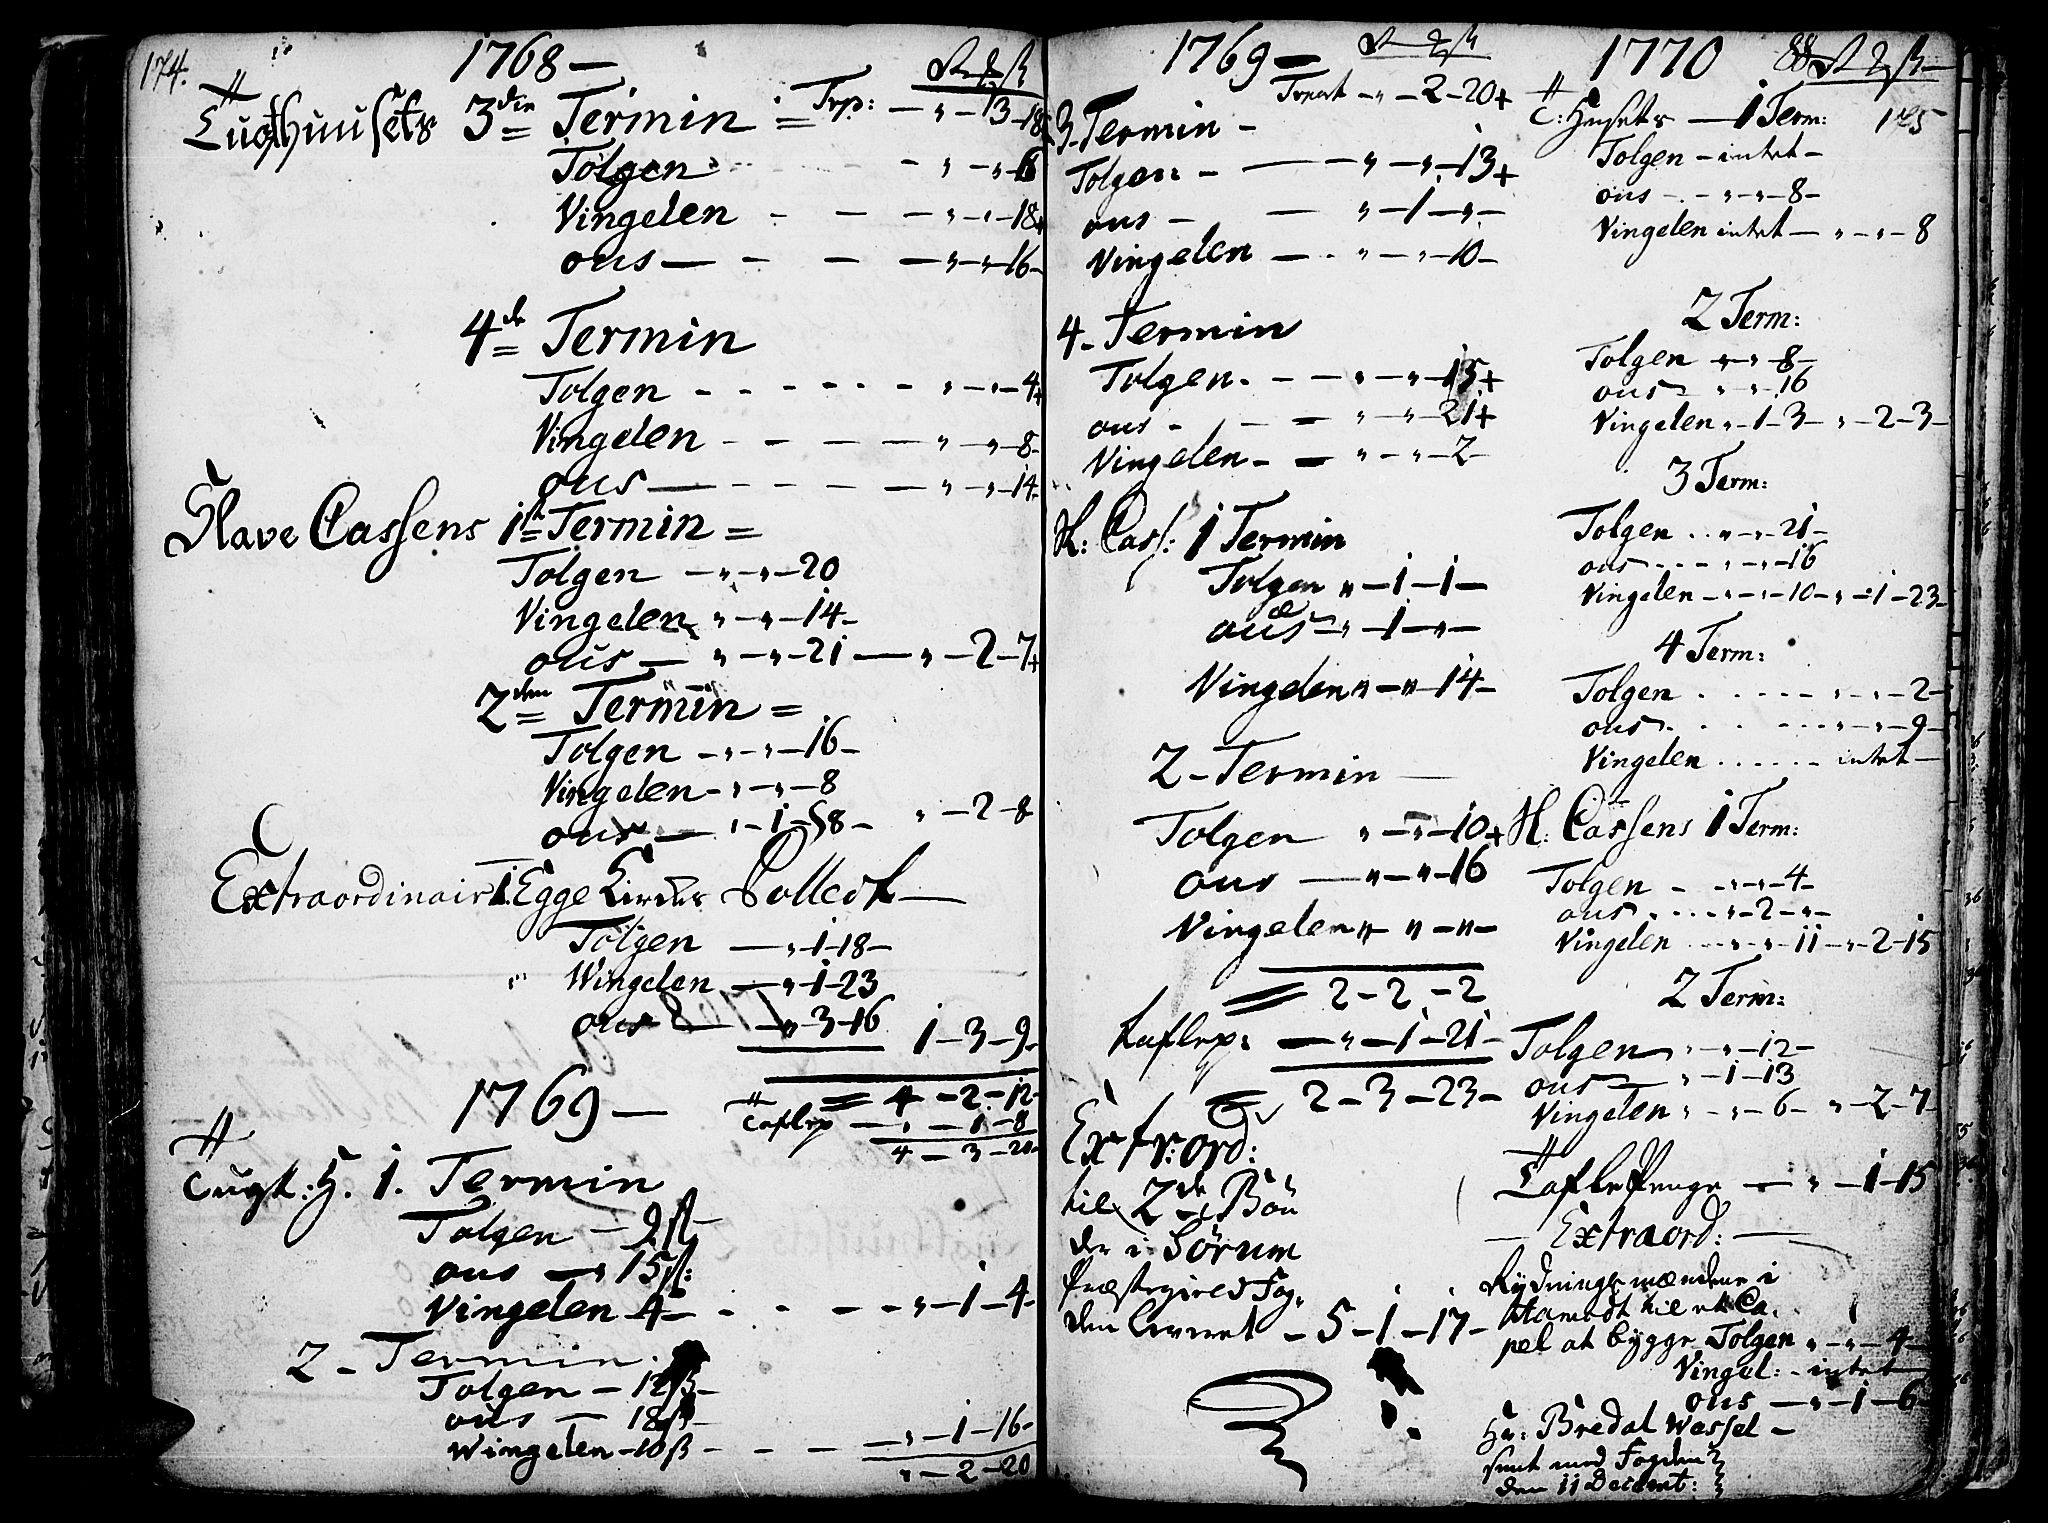 174.
1768 —
Tugthuusets 3die Termin = Trp: — " — 3 — 18
Tolgen — " — " — 6
Vingelen — — — " — " — 18+
ous — — — — " — " — 16 —
4de Termin
Tolgen - - - - - - " — " — 4+
Vingelen - - - — " — " — 8 -
ous — - - - - — " — " — 14 -
Slave Cassens 1ste Termin =
Tolgen — " — " — 20
Vingelen " — " — 14 -
ous — " — " — 21 — " — 2 — 7+
2den Termin =
Tolgen — " — " — 16 -
Vingelen - " — " — 8
ous — " — 1 — 8 - " — 2 — 8
Extraordinair 1. Egge Kirkes Collect —
Tolgen — " — 1 — 18 -
Wingelen — " — 1 — 23
ous — " — 3 — 16 1 — 3 — 9 -
= 4 — 2 — 12 -
Taflep — " — 1 — 8
4 — 3 — 20 -
1769 —
Tugt: H. 1. Termin
Tolgen — 9 ß —
ous — 15 ß:
Vingelen 4 - - - — — " — 1 — 4 -
2 - Termin.
Tolgen — 12 ß -
ous — 18 ß -
Wingelen - 10 ß - - — — " — 1 — 16 -
" — 2 — 20
1769 —
Trport — " — 2 — 20+
3. Termin -
Tolgen - — — " — " — 13+
ous - — " — 1 — " —
Vingelen — - " — " — 10 -
4 - Termin
Tolgen. - — — " — " — 15+
ous - - — " — " — 21+
Vingelen - — " — " — 2 -
H: Cass: 1 Termin
Tolgen " — 1 — 1 —
ous — " — 1 — " —
Vingelen " — " — 14 -
2 - Termin —
Tolgen " — " — 10+
ous — " — " — 16
Vingelen " — " — " —
= 2 — 2 — 2
Taflep: — " — 1 — 21 -
2 — 3 — 23 -
Extr:ord:
til 2de Bön
der i Sörum
Præstegield Fog.
den leveret — 5 — 1 — 17 -
1770 88
175
C: Husets — 1 Term:
Tolgen — intet —
ous - " — " — 8 -
Vingelen intet — " — " — 8
2 Term:
Tolgen " — " — 8 —
ous " — " — 16
Vingelen " — 1 — 3 — " — 2 — 3 -
3 Term:
Tolgen . . " — " — 21 -
ous . . - " — " — 16
Vingelen — " — " — 10 — " — 1 — 23
4 Term:
Tolgen . . . . . . " — " — 2 -
ous . . . . . . " — " — 9 -
Vingelen . . . . . . intet —
H: Cassens 1 Term:
Tolgen - . " — " — 4 -
ous . . . . " — 2 — " —
Vingelen . . . " — " — 11 — " — 2 — 15
2 Term:
Tolgen " — " — 12 —
ous " — 1 — 13
Vingelen " — " — 6 — " — 2 — 7 -
Tafle Penge — " — 1 — 15
— Extraord: —
Rydningsmændene i
til et Ca,
pel at bygge Tolgen " — 1 — 4 -
Vingel: - intet
ous — " — 1 — 6 -
Hr: Bredal Wessel —
sent med Fogden
den 11 Decembt: